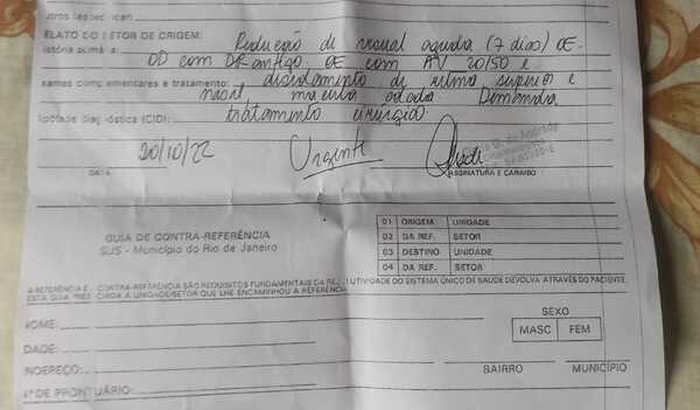 ELATO DO SETOR DE ORIGEM:
Redução de visual aguda (7 dias) OE.
OD com DR antigo, OE com AV 20/50 e
ames complementares e tratamento: descolamento de retina superior e
nasal, macula colada. Demanda
tratamento cirurgico.
20/10/22 Urgente
DATA ASSINATURA E CARIMBO
01 ORIGEM UNIDADE
GUIA DE CONTRA-REFERÊNCIA 02 DA REF. SETOR
SUS - Município do Rio de Janeiro 03 DESTINO UNIDADE
04 DA REF. SETOR
A REFERÊNCIA E CONTRA-REFERÊNCIA SÃO REQUISITOS FUNDAMENTAIS DA RE UTIVIDADE DO SISTEMA ÚNICO DE SAÚDE DEVOLVA ATRAVÉS DO PACIENTE
ESTA GUIA À UNIDADE/SETOR QUE LHE ENCAMINHOU A REFERÊNCIA
SEXO
NOME: MASC FEM
DADE:
NDEREÇO: BAIRRO MUNICÍPIO
Nº DE PRONTUÁRIO: